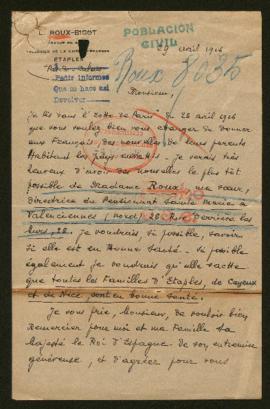 L. ROUX-BIGOT
ETAPLES
POBLACIÓN
CIVIL
29 avril 1916
Roux 8035
Pedir informes
Que no haec asi
Devolver
Monsieur,
Je lis dans l'Echo de Paris du 28 avril 1916
que vous voulez bien vous charger de donner
aux Français des nouvelles de leurs parents
Habitant les pays envahis. Je serais très
heureux d'avoir des nouvelles le plus tôt
possible de Madame Roux, ma sœur,
Directrice du Pensionnat Sainte Marie à
Valenciennes (Nord) 28 Rue Derrière les
murs. Je voudrais si possible, savoir
si elle est en Bonne Santé. Si possible
également je voudrais qu'elle sache
que toutes les Familles d'Etaples, de Cayeux
et de Nice sont en bonne santé.
Je vous prie, Monsieur, de vouloir bien
Remercier pour moi et ma Famille Sa
Majesté le Roi d'Espagne de son entremise
généreuse, et d'agréer pour vous